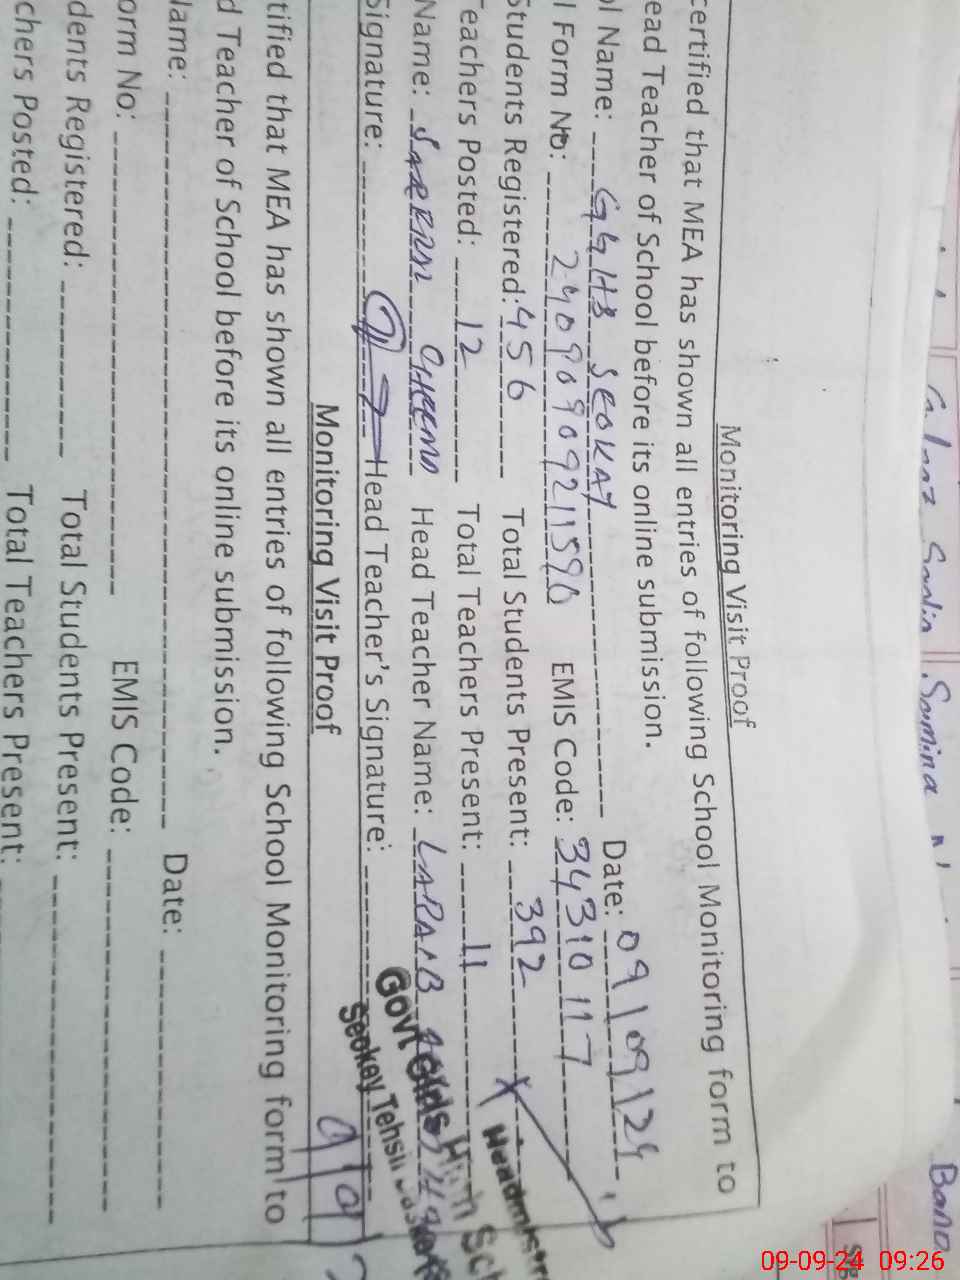 Monitoring Visit Proof
certified that MEA has shown all entries of following School Monitoring form to
ead Teacher of School before its online submission.
ol Name: GGHS SEOKAY Date: 09/09/24
l Form No: 24090909211590 EMIS Code: 34310117
Students Registered: 456 Total Students Present: 392
Teachers Posted: 12 Total Teachers Present: 11
Name: CHEEMA Head Teacher Name: LARAIB
Signature: Head Teacher's Signature:
Headmistre
Govt Girls High Sch
Seokey Tehsil
Monitoring Visit Proof
tified that MEA has shown all entries of following School Monitoring form to
d Teacher of School before its online submission.
Name: Date:
orm No: EMIS Code:
dents Registered: Total Students Present:
chers Posted: Total Teachers Present:
Samina
Bano
09-09-24 09:26